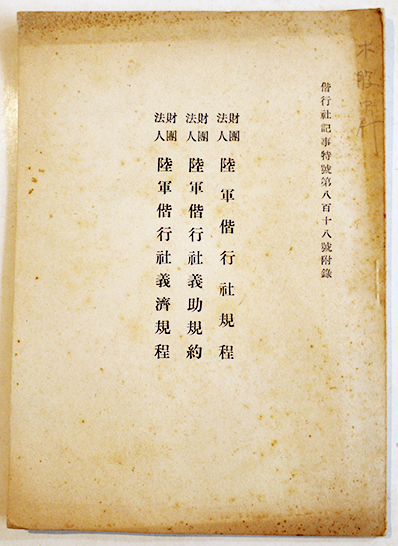 偕行社記事特號第八百十八號附錄
財團法人 陸軍偕行社規程
財團法人 陸軍偕行社義助規約
財團法人 陸軍偕行社義濟規程